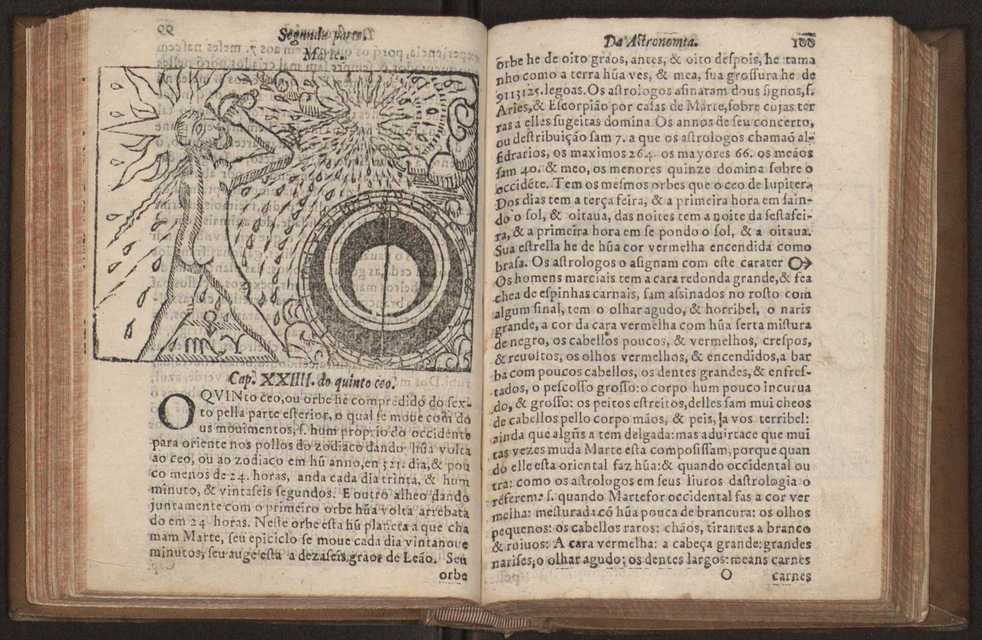 Segunda parte.
Marte.
Cap. XXIIII. do quinto ceo.
O QVINto ceo, ou orbe he compredido do sex-
to pella parte esterior, o qual se moue com do
us mouimentos, s. hum proprio do occidente
para oriente nos pollos do zodiaco dando hũa volta
ao ceo, ou ao zodiaco em hũ anno, en 321. dia, & pou
co menos de 24. horas, anda cada dia trinta, & hum
minuto, & vintaseis segundos. E outro alheo dando
juntamente com o primeiro orbe hũa volta arrebata
do em 24 horas. Neste orbe está hũ planeta a que cha
mam Marte, seu epiciclo se moue cada dia vintanoue
minutos, seu auge está a dezaseis graos de Leão. Seu
orbe
Da Astronomia. 100
orbe he de oito graos, antes, & oito despois, he tama
nho como a terra hũa ves, & mea, sua grossura he de
9113125. legoas. Os astrologos asinaram dous signos, s.
Aries, & Escorpião por casas de Marte, sobre cujas ter
ras a elles sugeitas domina. Os annos de seu concerto,
ou destribuição sam 7. a que os astrologos chamaõ al-
fidrarios, os maximos 264. os mayores 66. os meãos
sam 40. & meo, os menores quinze domina sobre o
occidẽte. Tem os mesmos orbes que o ceo de Iupiter.
Dos dias tem a terça feira, & a primeira hora em sain-
do o sol, & oitaua, das noites tem a noite da sestafei-
ra, & a primeira hora em se pondo o sol, & a oitaua.
Sua estrella he de hũa cor vermelha encendida como
brasa. Os astrologos o asignam com este carater ♂
Os homens marciais tem a cara redonda grande, & fea
chea de espinhas carnais, sam assinados no rosto com
algum sinal, tem o olhar agudo, & horribel, o naris
grande, a cor da cara vermelha com hũa serta mistura
de negro, os cabellos poucos, & vermelhos, crespos,
& reuoltos, os olhos vermelhos, & encendidos, a bar
ba com poucos cabellos, os dentes grandes, & enfres-
tados, o pescosso grosso: o corpo hum pouco incurua
do, & grosso: os peitos estreitos, delles sam mui cheos
de cabellos pello corpo mãos, & peis, la vos terribel:
ainda que algũs a tem delgada: mas aduirtace que mui
tas vezes muda Marte esta composissam, porque quan
do elle esta oriental faz hũa: & quando occidental ou
tra: como os astrologos em seus liuros dastrologia o
referem: s. quando Marte for occidental fas a cor ver
melha: mesturada cõ hũa pouca de brancura: os olhos
pequenos: os cabellos raros: chãos, tirantes a branco
& ruiuos: A cara vermelha: a cabeça grande: grandes
narises, o olhar agudo: os dentes largos: means carnes
O carnes